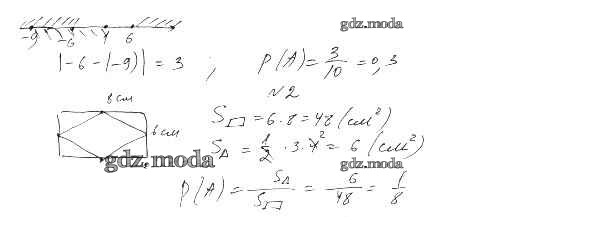 gdz.moda
-9 -6 1 6
|-6-(-9)| = 3 ; P(A) = 3/10 = 0,3
№2
8 см
S▭ = 6·8 = 48 (см²)
6 см
S△ = 1/2 · 3·4² = 6 (см²)
gdz.moda gdz.moda
P(A) = S△/S▭ = 6/48 = 1/8